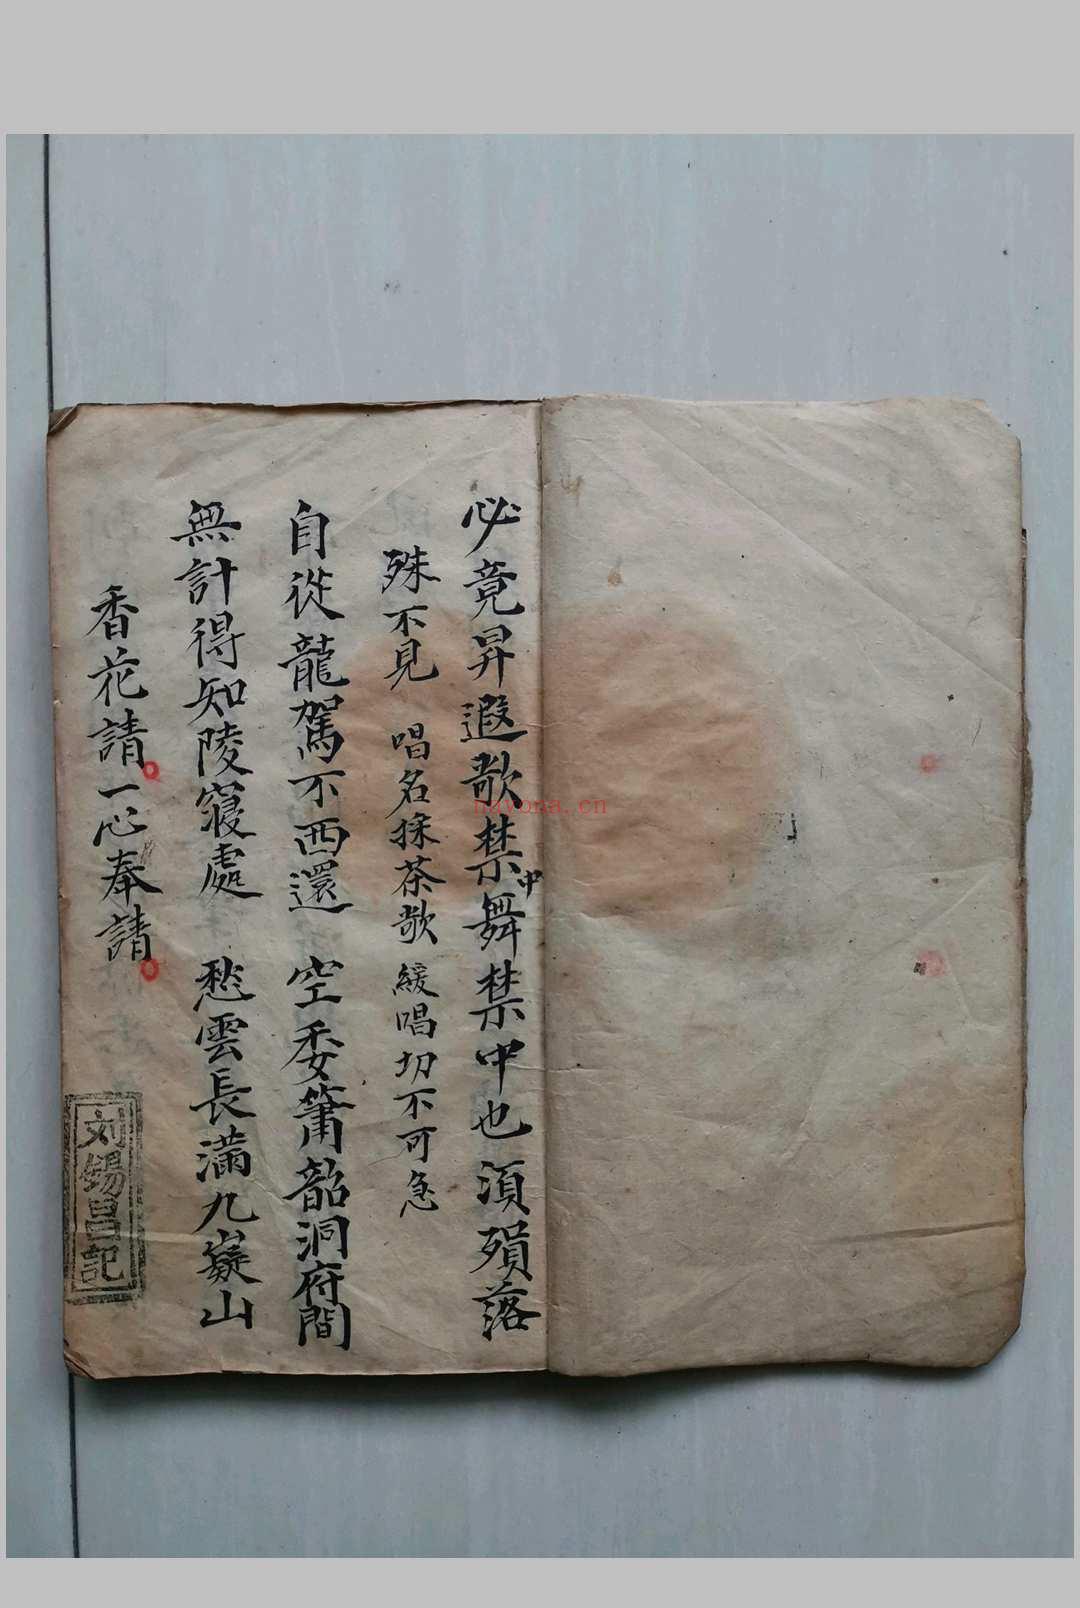 必竟昇遐歌禁中舞禁中也須殞落
殊不見 唱名採茶歌 緩唱切不可急
自從龍駕不西還 空委簫韶洞府間
無計得知陵寢處 愁雲長滿九嶷山
香花請一心奉請
刘錫昌記
nayona.cn